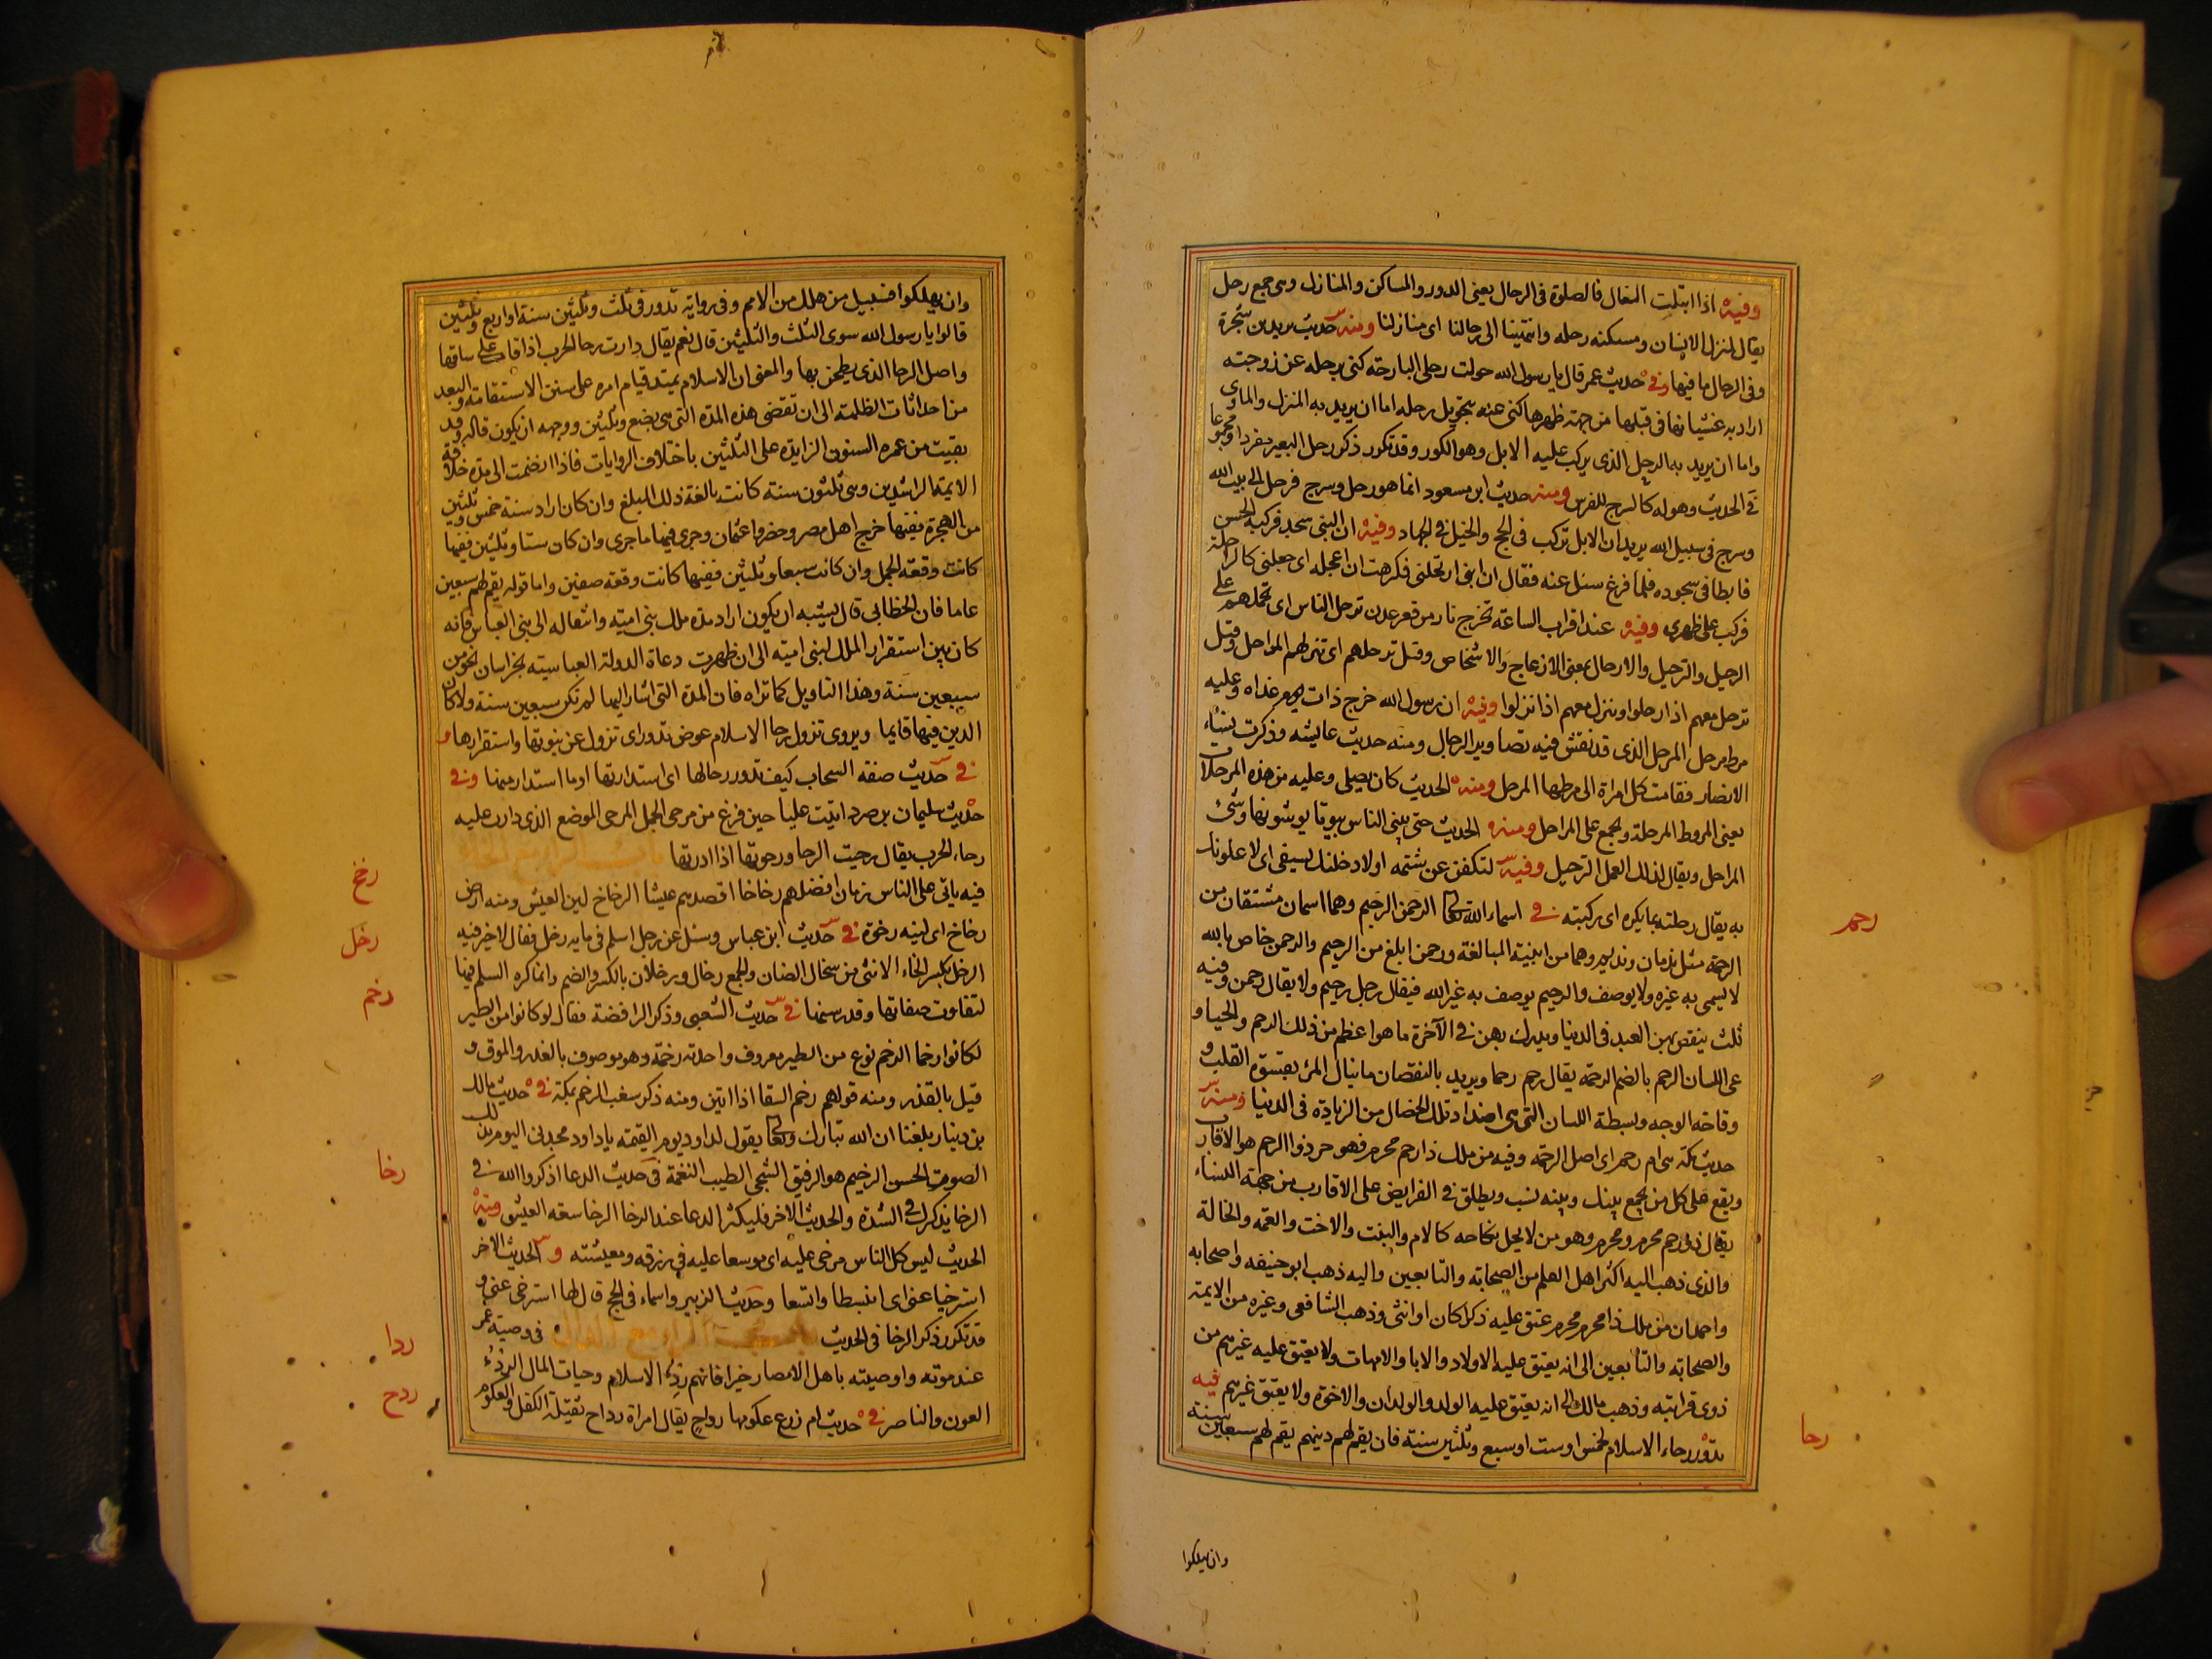 وفيه اذا ابتلت النعال فالصلوة فى الرحال يعنى الدور والمساكن والمنازل وهى جمع رحل
يقال لمنزل الانسان ومسكنه رحله وانتهينا الى رحالنا اى منازلنا ومنه حديث يزيد بن شجرة
وفى الرحال ما فيها وفى حديث عمر قال يا رسول الله حولت رحلى البارحة كنى برحله عن زوجته
اراد به غشيانها فى قبلها من جهة ظهرها كنى عنه بتحويل رحله اما ان يريد به المنزل والماوى
واما ان يريد به الرحل الذى يركب عليه الابل وهو الكور وقد تكرر ذكر رحل البعير مفردا ومجموعا
فى الحديث وهو له كالسرج للفرس ومنه حديث ابن مسعود انما هو رحل وسرج فرحل الى بيت الله
وسرج فى سبيل الله يريد ان الابل تركب فى الحج والخيل فى الجهاد وفيه ان النبى سجد فركبه الحسن
فابطا فى سجوده فلما فرغ سئل عنه فقال ان ابنى ارتحلنى فكرهت ان اعجله اى جعلنى كالراحلة
فركب على ظهرى وفيه عند اقتراب الساعة تخرج نار من قعر عدن ترحل الناس اى تحملهم على
الرحيل والترحيل والارحال بمعنى الازعاج والاشخاص وقيل ترحلهم اى تنزلهم المراحل وقيل
ترحل معهم اذا رحلوا وتنزل معهم اذا نزلوا وفيه ان رسول الله خرج ذات يوم غداه وعليه
مرط مرحل المرحل الذى قد نقش فيه تصاوير الرحال ومنه حديث عايشه وذكرت نساء
الانصار فقامت كل امراة الى مرطها المرحل ومنه الحديث كان يصلى وعليه من هذه المرحلات
يعنى المروط المرحلة وتجمع على المراحل ومنه الحديث حتى يبنى الناس بيوتا يوشونها وشى
المراحل ويقال لذلك العمل الترحيل وفيه لتكفن عن شتمه او لارحلنك بسيفى اى لاعلونك
به يقال رحلته بما يكره اى ركبته فى اسماء الله تعالى الرحمن الرحيم وهما اسمان مشتقان من
الرحمة مثل ندمان ونديم وهما من ابنية المبالغة ورحمن ابلغ من الرحيم والرحمن خاص بالله
لا يسمى به غيره ولا يوصف والرحيم يوصف به غير الله فيقال رجل رحيم ولا يقال رحمن وفيه
ثلث ينقص بهن العبد فى الدنيا ويدرك بهن فى الآخرة ما هو اعظم من ذلك الرحم والحياء و
عى اللسان الرحم بالضم الرحمة يقال رحم رحما ويريد بالنقصان ما ينال المرء بقسوة القلب و
وقاحة الوجه وبسطة اللسان التى هى اضداد تلك الخصال من الزيادة فى الدنيا ومنه
حديث مكة هى ام رحم اى اصل الرحمة وفيه من ملك ذا رحم محرم فهو حر ذوا الرحم هو الاقارب
ويقع على كل من يجمع بينك وبينه نسب ويطلق فى الفرايض على الاقارب من جهة النساء
يقال ذى رحم محرم ومحرم وهو من لا يحل نكاحه كالام والبنت والاخت والعمه والخالة
والذى ذهب اليه اكثر اهل العلم من الصحابه والتابعين واليه ذهب ابو حنيفه واصحابه
واحمد ان من ملك ذا محرم محرم عتق عليه ذكرا كان او انثى وذهب الشافعى وغيره من الايمة
والصحابه والتابعين الى انه يعتق عليه الاولاد والابا والامهات ولا يعتق عليه غيرهم من
ذوى قرابته وذهب مالك الى انه يعتق عليه الولد والولدان والاخوة ولا يعتق غيرهم فيه
تدور رحاء الاسلام لخمس او ست او سبع وثلثين سنة فان يقم لهم دينهم يقم لهم سبعين سنة
وان يهلكوا
رحم
رحا
وان يهلكوا فسبيل من هلك من الامم وفى روايه تدور فى ثلث وثلثين سنة او اربع وثلثين
قالوا يا رسول الله سوى الثلث والثلثين قال نعم يقال دارت رحا الحرب اذا قامت على ساقها
واصل الرحا الذى يطحن بها والمعنى ان الاسلام يمتد قيام امره على سنن الاستقامة والبعد
من احداثات الظلمة الى ان تقضى هذه المدة التى هى بضع وثلثين ووجهه ان يكون قاله وقد
بقيت من عمره السنون الزايدة على الثلثين باختلاف الروايات فاذا انضمت الى مدة خلافة
الايمة الراشدين وهى ثلثون سنة كانت بالغة ذلك المبلغ وان كان اراد سنة خمس وثلثين
من الهجرة ففيها خرج اهل مصر وحضروا عثمان وجرى فيها ما جرى وان كان ستا وثلثين ففيها
كانت وقعة الجمل وان كانت سبعا وثلثين ففيها كانت وقعة صفين واما قوله يقم لهم سبعين
عاما فان الخطابى قال يشبه ان يكون اراد مدة ملك بنى امية وانتقاله الى بنى العباس فانه
كان بين استقرار الملك لبنى امية الى ان ظهرت دعاة الدولة العباسية بخراسان نحو من
سبعين سنة وهذا التاويل كما تراه فان المدة التى اشار اليها لم تكن سبعين سنة ولا كان
الدين فيها قايما ويروى تزول رحا الاسلام عوض تدور اى تزول عن ثبوتها واستقرارها
فى حديث صفة السحاب كيف تدور رحالها اى استدارتها او ما استدار منها وفى
حديث سليمان بن صرد اتيت عليا حين فرغ من مرحى الجمل المرحى الموضع الذى دارت عليه
رحاء الحرب يقال رحيت الرحا ورحوتها اذا ادرتها باب الراء مع الخاء
فيه ياتى على الناس زمان افضلهم رخاخا اقصدهم عيشا الرخاخ لين العيش ومنه ارض
رخاخ اى لينة رخوة فى حديث ابن عباس وسئل عن رجل اسلم فى ماية رخل فقال لا خير فيه
الرخل بكسر الخاء الانثى من سخال الضان والجمع رخال ورخلان بالكسر والضم وانما كره السلم فيها
لتفاوت صفاتها وقدر سنها فى حديث الشعبى وذكر الرافضة فقال لو كانوا من الطير
لكانوا رخما الرخم نوع من الطير معروف واحدته رخمة وهو موصوف بالغدر والموق و
قيل بالقذر ومنه قولهم رخم السقا اذا انتن ومنه ذكر شعب الرخم بمكة فى حديث مالك
بن دينار بلغنا ان الله تبارك وتعالى يقول لداود يوم القيمة يا داود مجدنى اليوم بذلك
الصوت الحسن الرخيم هو الرقيق الشجى الطيب النغمة فى حديث الدعا اذكروا الله فى
الرخا يذكركم فى الشدة والحديث الاخر فليكثر الدعا عند الرخا الرخا سعة العيش ومنه
الحديث ليس كل الناس مرخى عليه اى موسعا عليه فى رزقه ومعيشته و الحديث الاخر
استرخيا عنى اى انبسطا واتسعا وحديث الزبير واسماء فى الحج قال لها استرخى عنى و
قد تكرر ذكر الرخا فى الحديث باب الراء مع الدال فى وصية عمر
عند موته واوصيته باهل الامصار خيرا فانهم ردء الاسلام وجبات المال الردء
العون والناصر فى حديث ام زرع عكومها رداح يقال امراة رداح ثقيلة الكفل والعكوم
رخخ
رخل
رخم
رخا
ردا
ردح